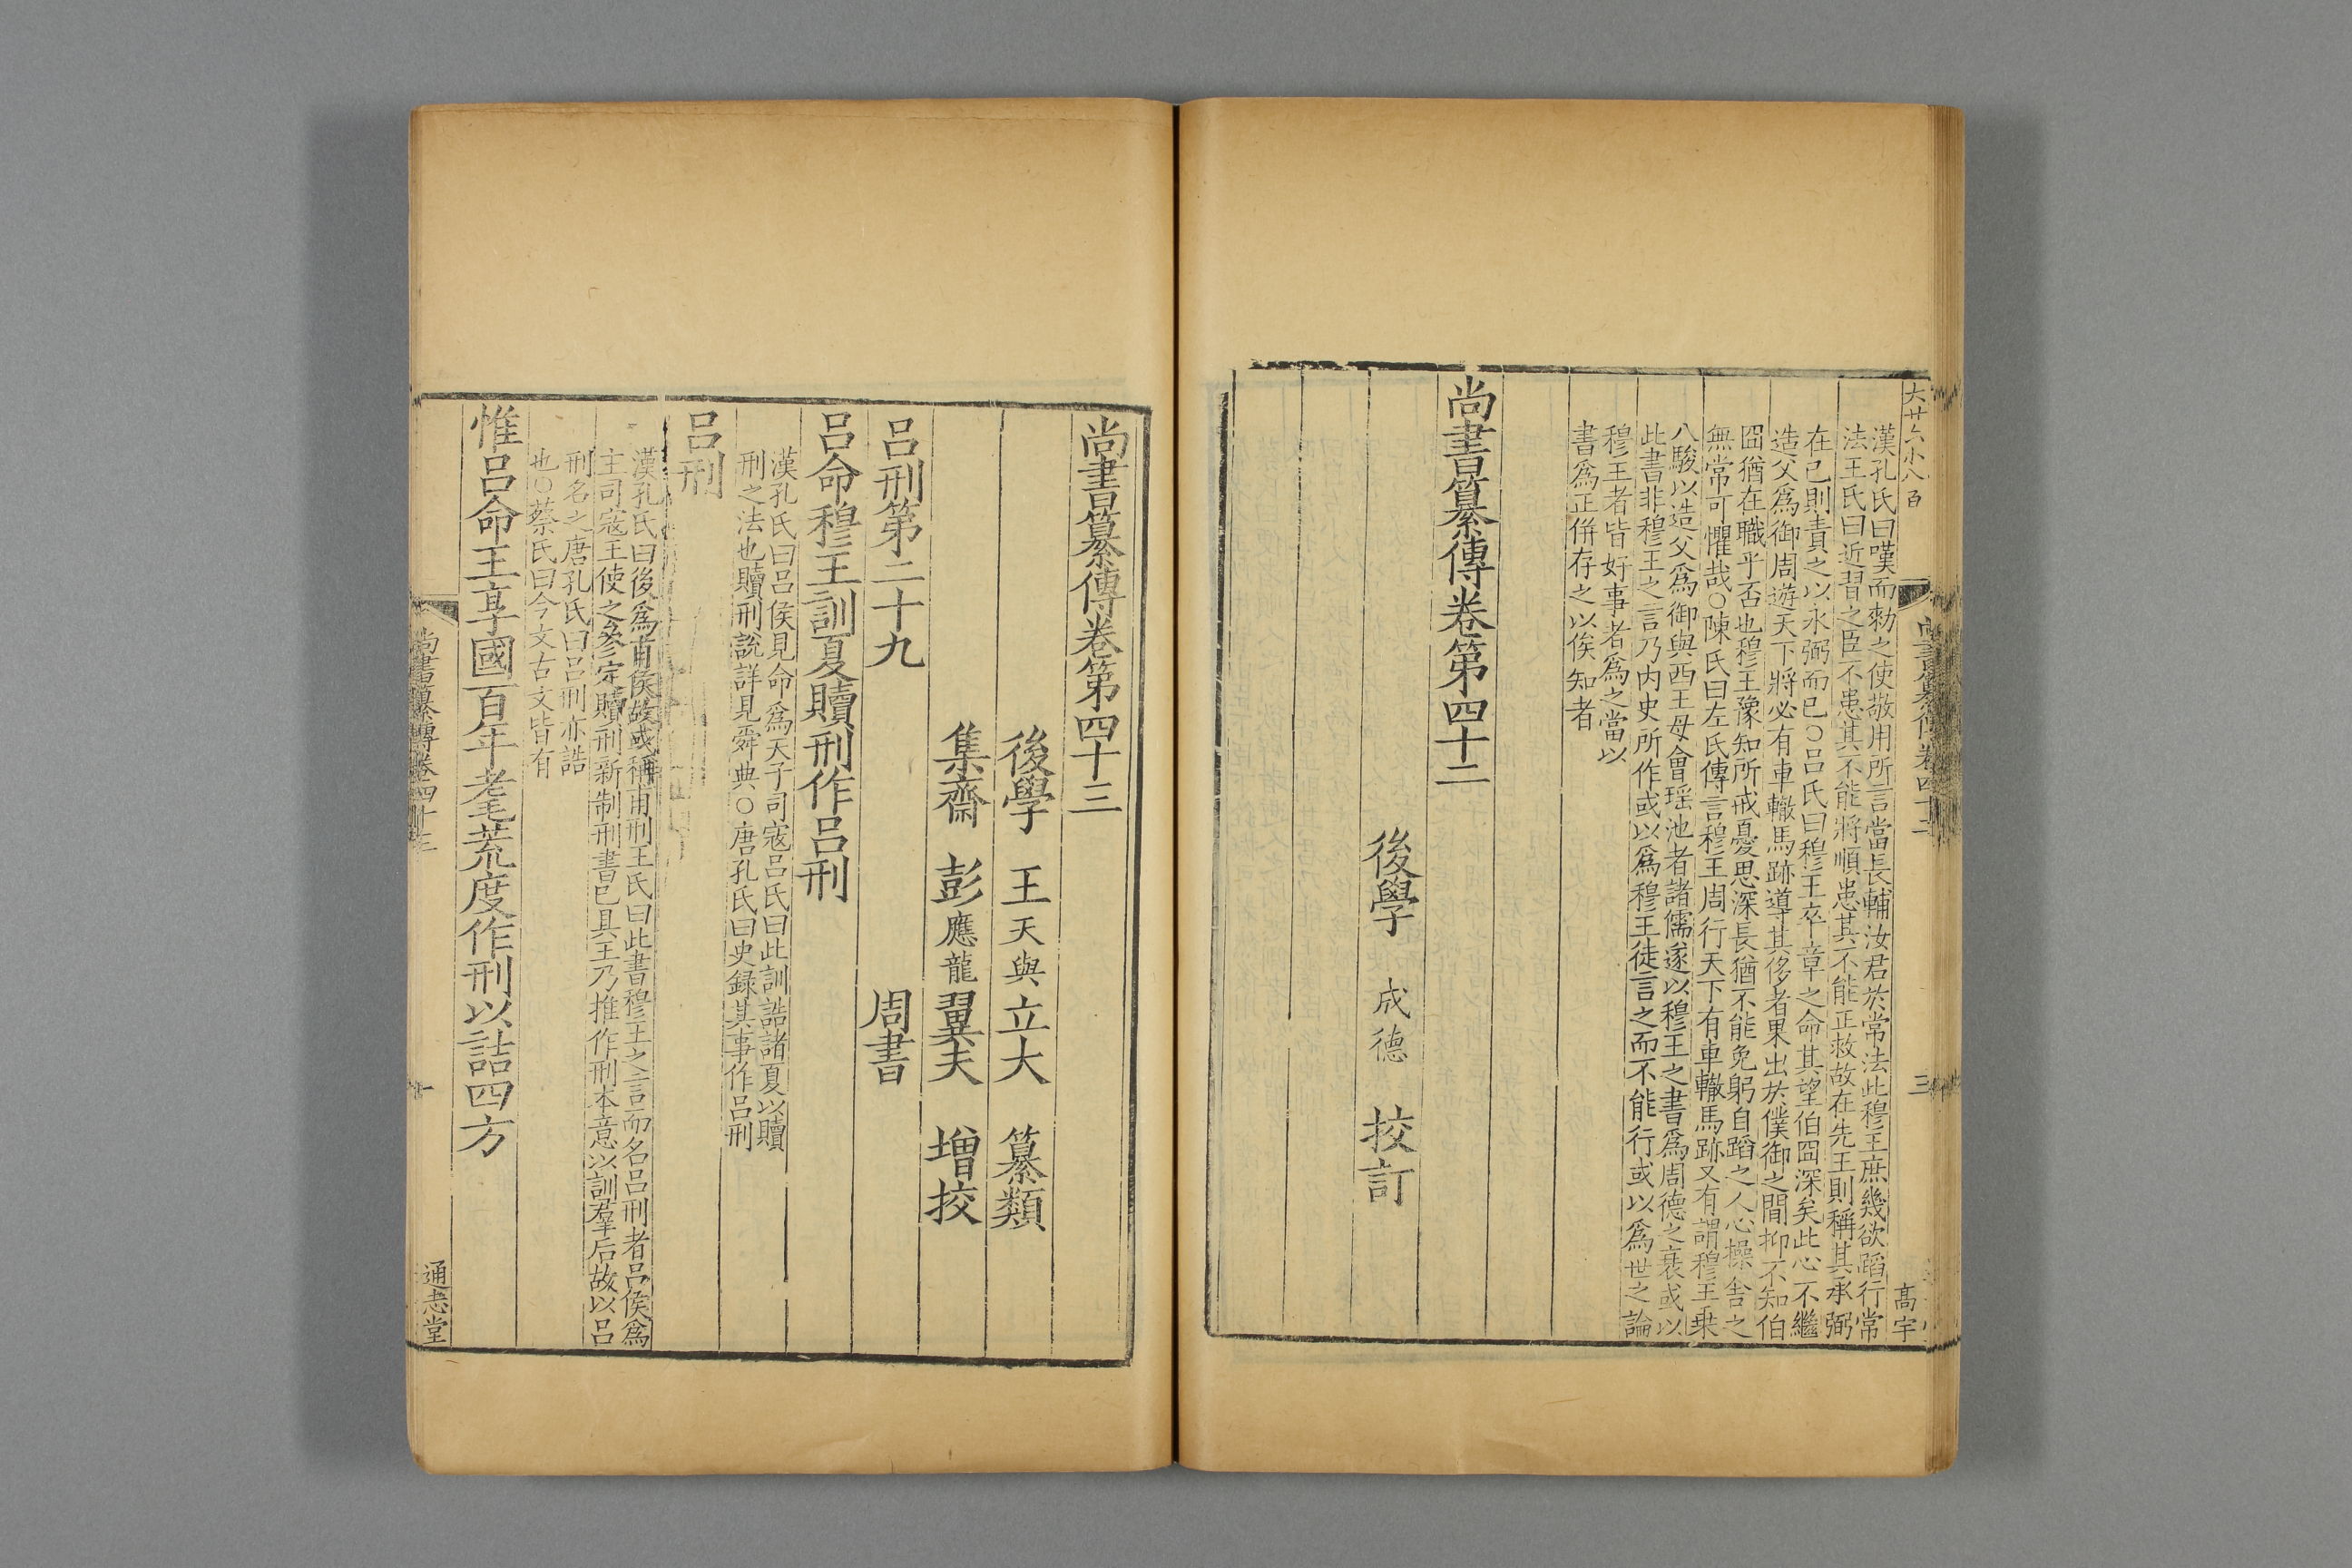 大廿六小八百
髙宇
漢孔氏曰嘆而勑之使敬用所言當長輔汝君於常法此穆王庶幾欲蹈行常
法王氏曰近習之臣不患其不能將順患其不能正救故在先王則稱其承弼
在已則責之以永弼而已○吕氏曰穆王卒章之命其望伯冏深矣此心不繼
造父爲御周遊天下將必有車轍馬跡導其侈者果出於僕御之間抑不知伯
冏猶在職乎否也穆王豫知所戒憂思深長猶不能免躬自蹈之人心操舍之
無常可懼哉○陳氏曰左氏傳言穆王周行天下有車轍馬跡又有謂穆王乗
八駿以造父爲御與西王母會瑶池者諸儒遂以穆王之書爲周德之衰或以
此書非穆王之言乃内史所作或以爲穆王徒言之而不能行或以爲世之論
穆王者皆好事者爲之當以
書爲正併存之以俟知者
尚書纂傳卷第四十二
後學 成德 挍訂
尚書纂傳卷第四十三
後學 王天與立大 纂類
集齋 彭應龍翼夫 增挍
吕刑第二十九 周書
吕命穆王訓夏贖刑作吕刑
漢孔氏曰吕侯見命爲天子司寇吕氏曰此訓誥諸夏以贖
刑之法也贖刑說詳見舜典○唐孔氏曰史録其事作吕刑
吕刑
漢孔氏曰後爲甫侯故或稱甫刑王氏曰此書穆王之言而名吕刑者吕侯爲
主司寇王使之參定贖刑新制刑書已具王乃推作刑本意以訓羣后故以吕
刑名之唐孔氏曰吕刑亦誥
也○蔡氏曰今文古文皆有
惟吕命王享國百年耄荒度作刑以詰四方
尚書纂傳卷四十三
一
通志堂